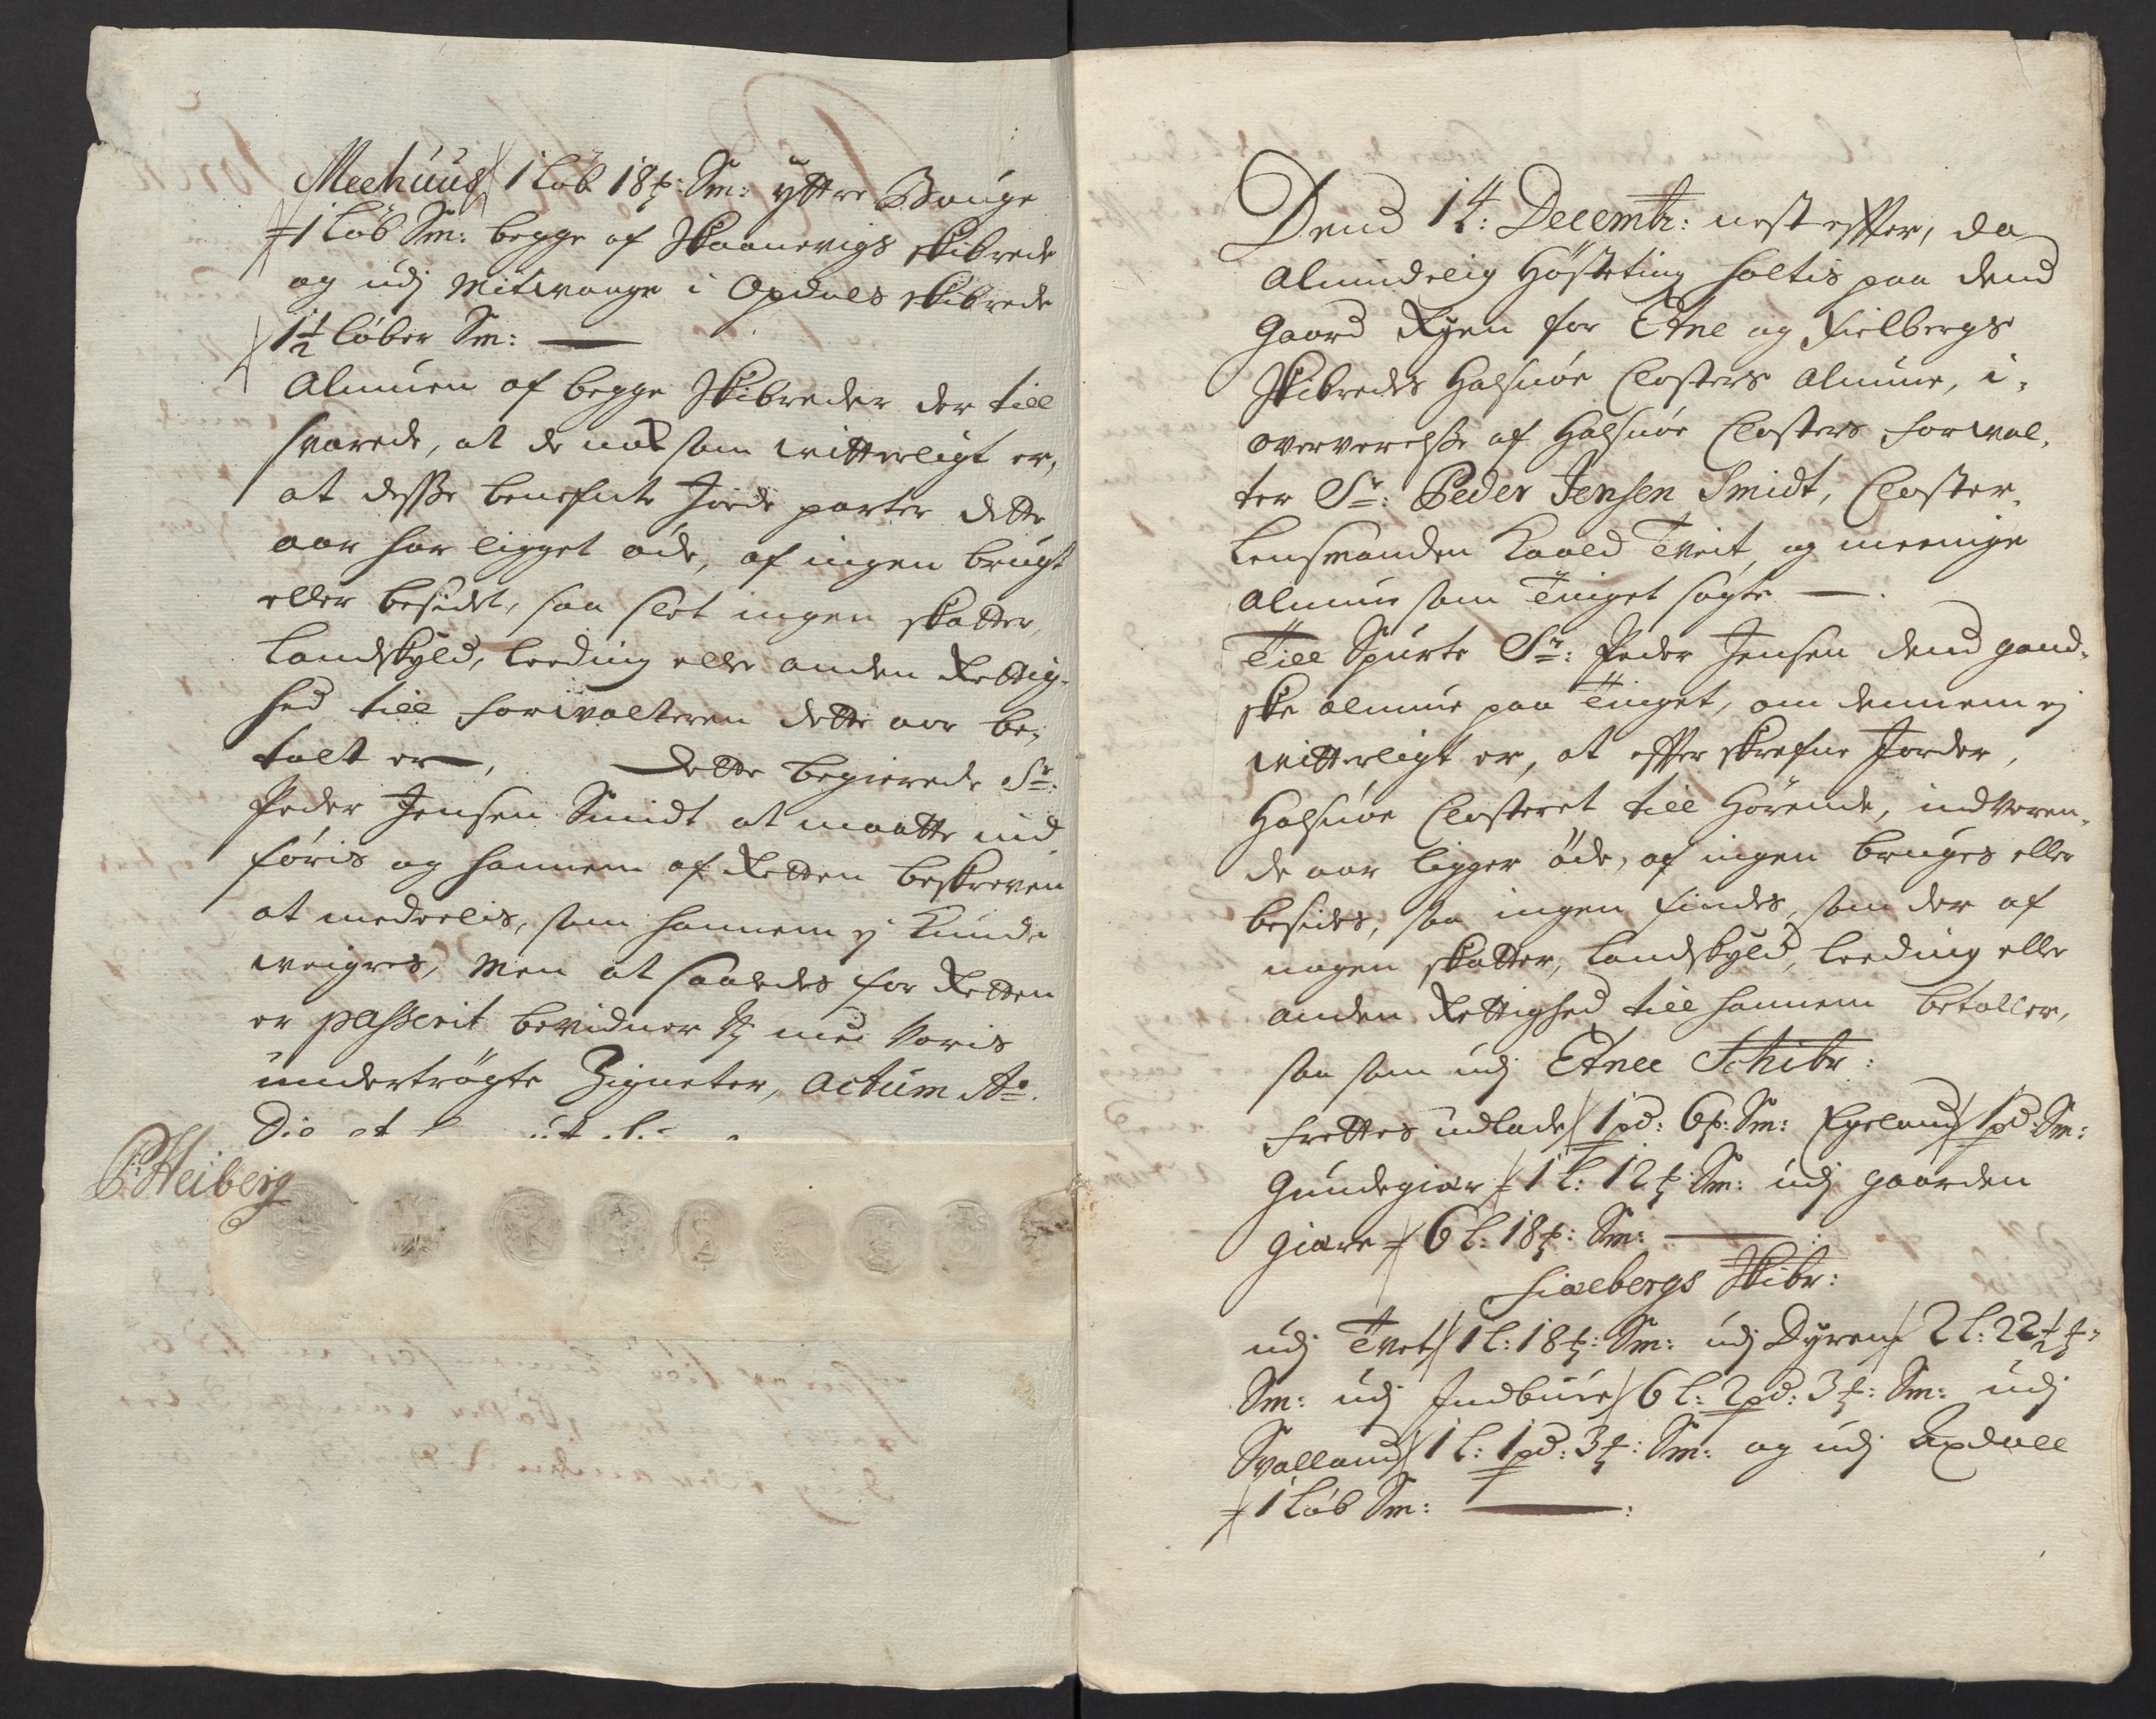 Meehuus 1 løb 18 ℔: Sm: yttre Bouge
1 Løb Sm: begge af Skaanevigs skibrede
og udj Mitwaage i Opdals skibrede
1½ løber Sm: —
Almuen af begge Skibreder der till
svarede, at de nok som witterligt er,
at desse benefnte Jorde parter dette
aar har ligget øde, af ingen brugt
eller besidt, saa slet ingen skatter,
Landskyld, leeding eller anden Rettig-
hed till forwalteren dette aar be-
talt er, Dette begierede Sr:
Peder Jensen Smidt at maatte ind
føris og hannem af Retten beskreven
at meddelis, som hannem ej kunde
weigres, Men at saaledes for Retten
er passerit bevidner vj med voris
undertrögte Zigneter, Actum Ao.
Die et
P: Heiberg
Dend 14: Decembr: nest effter, da
Almindelig Høsteting holtis paa dend
Gaard Ryen for Etne og Fielbergs
Skibreder Halsnøe Closters Almue, i,
oververelse af Halsnøe Closters forwal,
ter Sr: Peder Jensen Smidt, Closter,
Lensmanden Roald Tveit, og meenige
Almue som Tinget søgte —.
Till Spurte Sr: Peder Jensen dend gand,
ske almue paa Tinget, om dennem ej
witterligt er, at effterskrefne Jorder,
Halsnøe Closteret till Hørende, indveren,
de aar ligger øde, af ingen bruges eller
besides, saa ingen findes, som der af
nogen skatter, Landskyld, leeding eller
anden Rettighed till hannem betaller,
saa som udj Etnee Schibr:
Frettes udlade 1 pd: 6 ℔: Sm: Egeland 1 pd: Sm:
Gundegier 1 l: 12 ℔: Sm: udj gaarden
Giære 6 l: 18 ℔: Sm: —:
Fielbergs Skibr:
udj Tvet 1 l: 18 ℔: Sm: udj Dyren 2 l: 22½ ℔:
Sm: udj Indbuie 6 l: 2 pd: 3 ℔: Sm: udj
Svalland 1 l: 1 pd: 3 ℔: Sm: og udj Updall
1 Løb Sm: —: